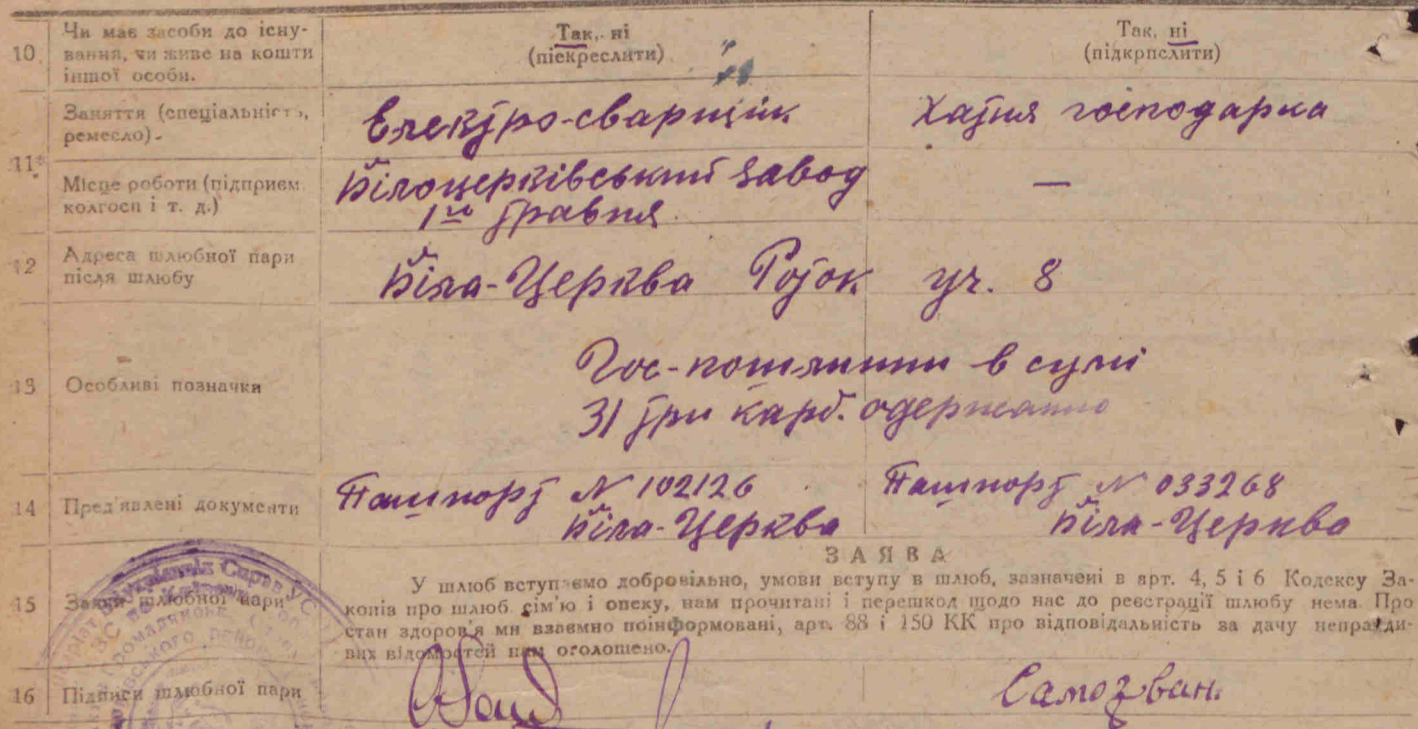 10 Чи має засоби до існу-
вання, чи живе на кошти
іншої особи.
Так, ні
(піекреслити)
Так, ні
(підкрпслити)
11 Заняття (спеціальність,
ремесло).
Електро-сварщік
Хатня господарка
Місце роботи (підприєм.
колгосп і т. д.)
Білоцерківський завод
1го травня
—
12 Адреса шлюбної пари
після шлюбу
Біла-Церква Роток уч. 8
13 Особливі позначки
Гос-пошлини в сумі
31 три карб. одержанно
14 Пред'явлені документи
Пашпорт N 102126
Біла-Церква
Пашпорт N 033268
Біла-Церква
ЗАЯВА
15 Заяви шлюбної пари
У шлюб вступаємо добровільно, умови вступу в шлюб, зазначені в арт. 4, 5 і 6 Кодексу За-
копів про шлюб сім'ю і опеку, нам прочитані і перешкод щодо нас до реєстрації шлюбу нема. Про
стан здоров'я ми взаємно поінформовані, арт. 88 і 150 КК про відповідальність за дачу неправди-
вих відомостей нам оголошено.
16 Підписи шлюбної пари
Самозван.